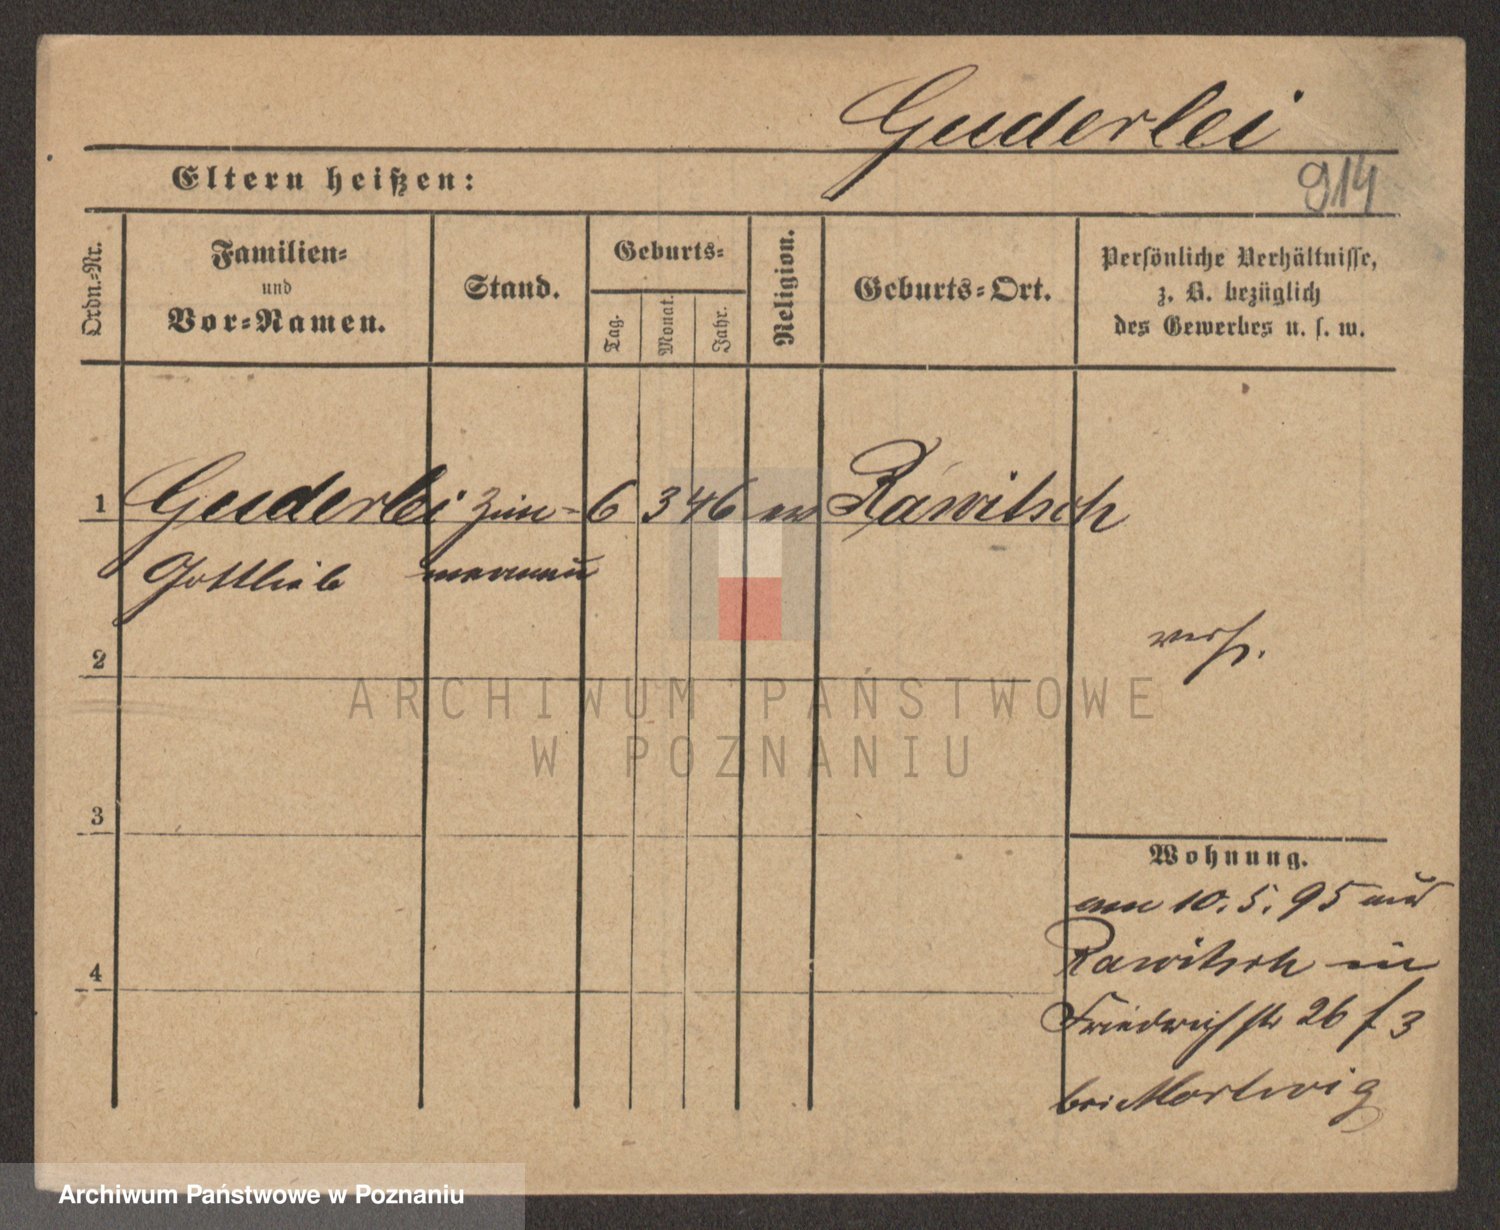 Guderlei
Eltern heißen:
914
Ordn.-Nr.
Familien-
und
Vor-Namen.
Stand.
Geburts-
Tag.
Monat.
Jahr.
Religion.
Geburts-Ort.
Persönliche Verhältnisse,
z. B. bezüglich
des Gewerbes u. s. w.
1 Guderlei Zim- 6 3 46 ev Rawitsch
Gottlieb mermann
verh.
2
ARCHIWUM PAŃSTWOWE
W POZNANIU
3
Wohnung.
am 10. 5. 95 aus
Rawitsch in
4
Friedrichstr 26 f 3
bei
Archiwum Państwowe w Poznaniu